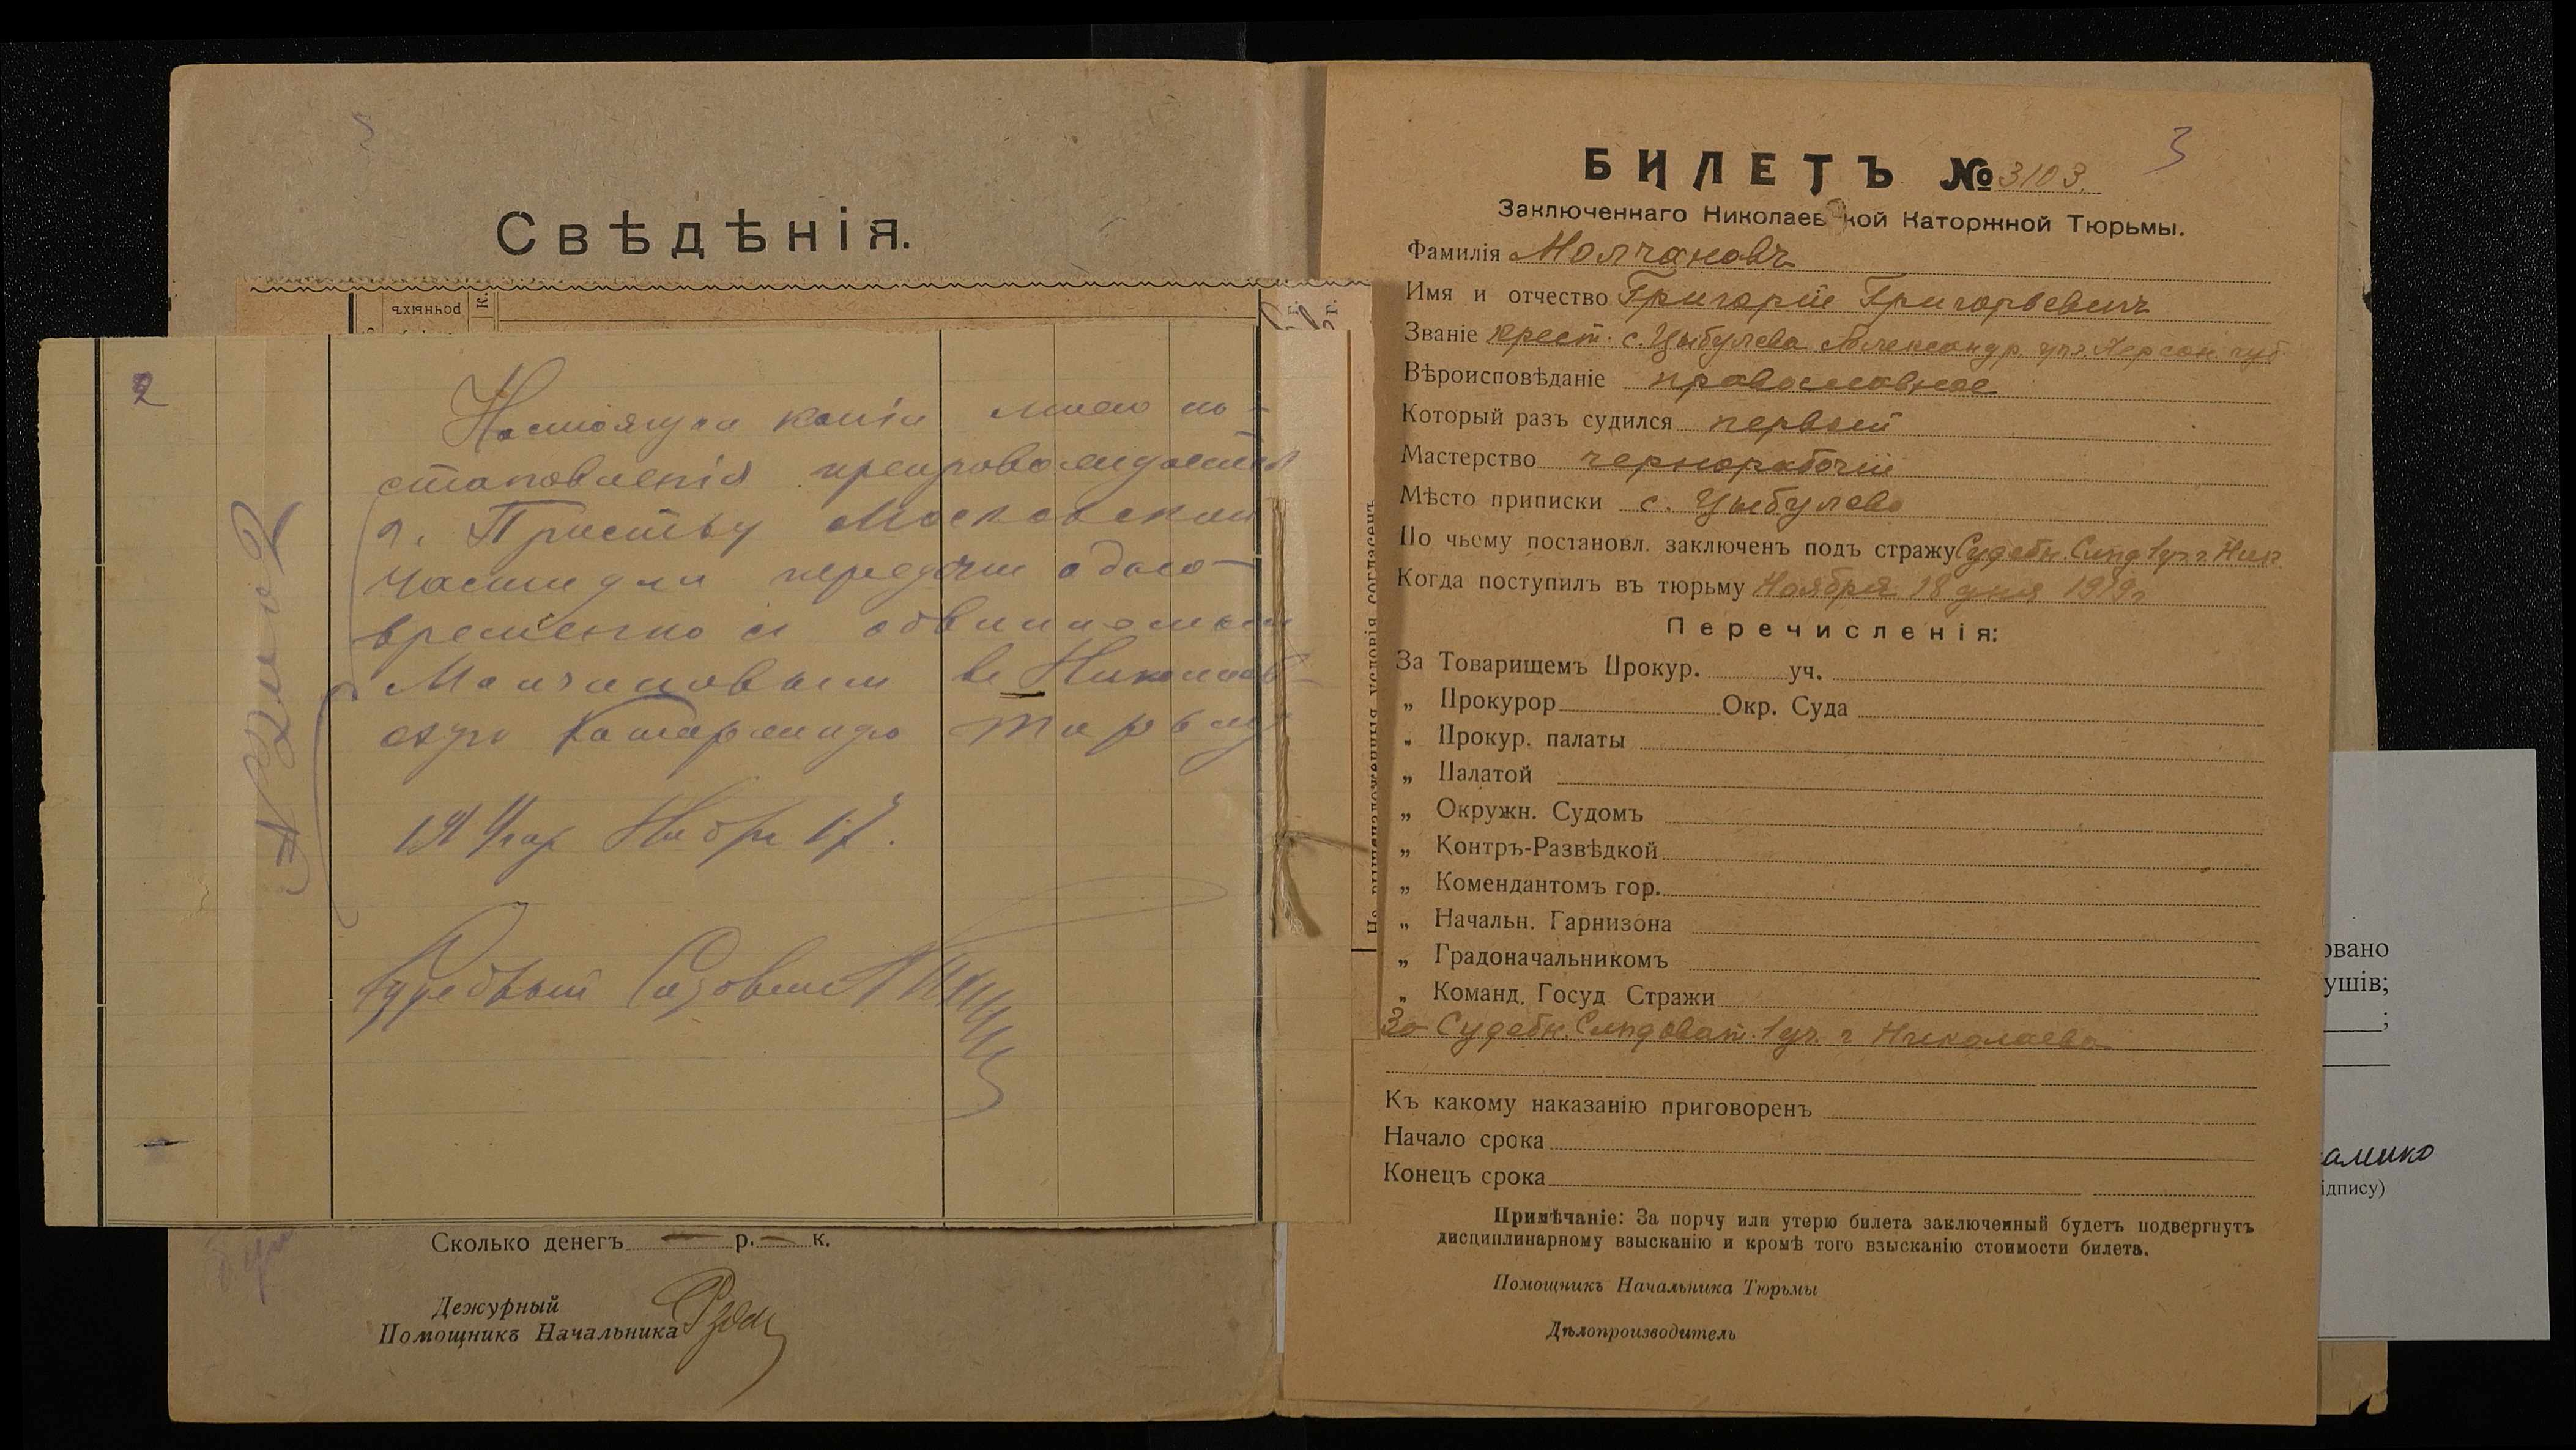 Свѣдѣнія.
рочныхъ
к.
2
Настоящая копія моего по-
становленія препровождается
г. Приставу Московской
части для передачи одно-
временно съ обвиняемымъ
Молчановымъ въ Николаев-
скую Каторжную тюрьму
1919 года Ноября 17.
Судебный Слѣдователь
Сколько денегъ — р. — к.
Дежурный
Помощникъ Начальника
3
БИЛЕТЪ № 3103.
Заключеннаго Николаевской Каторжной Тюрьмы.
Фамилія Молчановъ
Имя и отчество Григорій Григорьевичъ
Званіе крест. с. Цыбулева Александр. уѣз. Херсон. губ.
Вѣроисповѣданіе православное
Который разъ судился первый
Мастерство чернорабочій
Мѣсто приписки с. Цыбулево
По чьему постановл. заключенъ подъ стражу Судебн. Слѣд 1 уч. г. Ник.
Когда поступилъ въ тюрьму Ноября 18 дня 1919 г.
Перечисленія:
За Товарищемъ Прокур. уч.
„ Прокурор Окр. Суда
„ Прокур. палаты
„ Палатой
„ Окружн. Судомъ
„ Контръ-Развѣдкой
„ Комендантомъ гор.
„ Начальн. Гарнизона
„ Градоначальникомъ
„ Команд. Госуд Стражи
За Судебн. Слѣдоват. 1 уч. г Николаева
Къ какому наказанію приговоренъ
Начало срока
Конецъ срока
Примѣчаніе: За порчу или утерю билета заключенный будетъ подвергнутъ
дисциплинарному взысканію и кромѣ того взысканію стоимости билета.
Помощникъ Начальника Тюрьмы
Дѣлопроизводитель
овано
ушів;
;
ідпису)